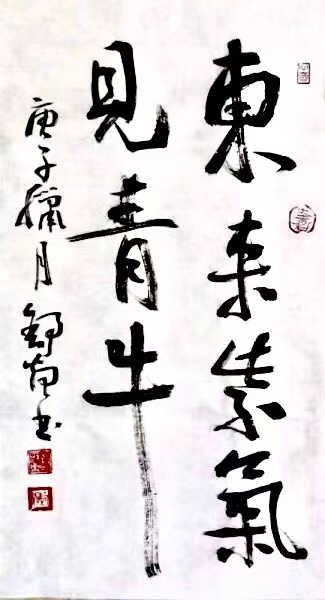 東來紫氣
見青牛
庚子臘月